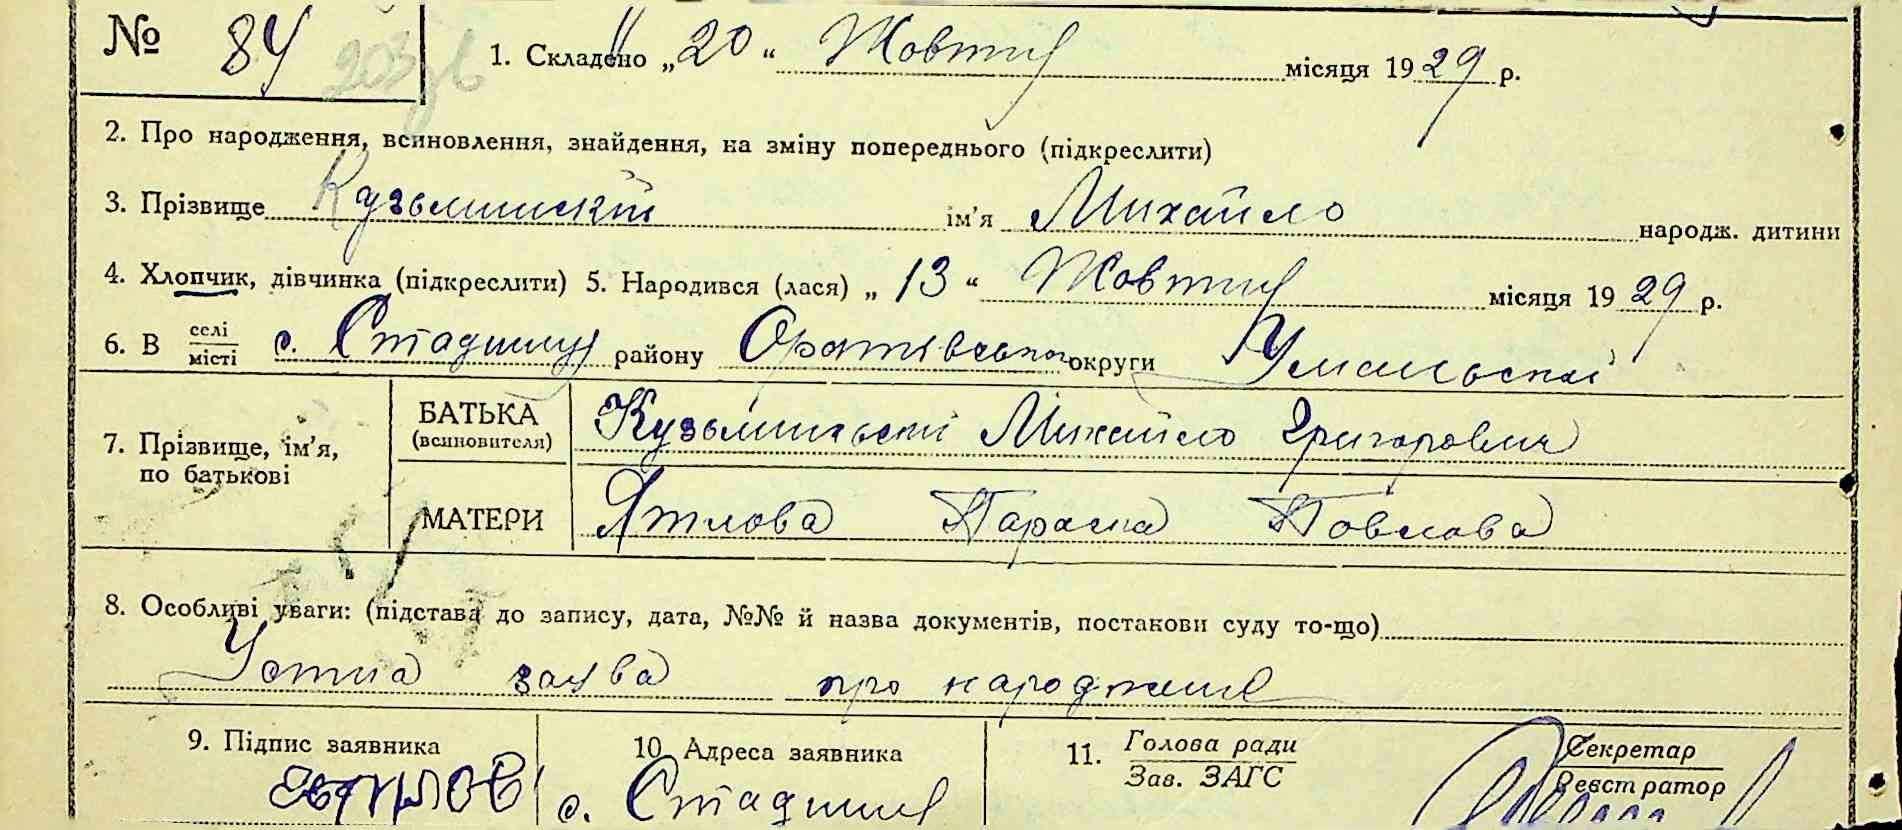 № 84 1. Складено „20“ Жовтня місяця 1929 р.
2. Про народження, всиновлення, знайдення, на зміну попереднього (підкреслити)
3. Прізвище Кузьминский ім'я Михайло народж. дитини
4. Хлопчик, дівчинка (підкреслити) 5. Народився (лася) „13“ Жовтня місяця 1929 р.
6. В селі/місті с. Стадниця району Оратівського округи Уманьскої
7. Прізвище, ім'я, по батькові
БАТЬКА (всиновителя) Кузьминські Михайло Григорович
МАТЕРИ Ятлова Параска Повлова
8. Особливі уваги: (підстава до запису, дата, №№ й назва документів, постакови суду то-що)
Устна заява про народженя
9. Підпис заявника 10. Адреса заявника 11. Голова ради/Зав. ЗАГС Секретар/Реєстратор
с. Стадниця